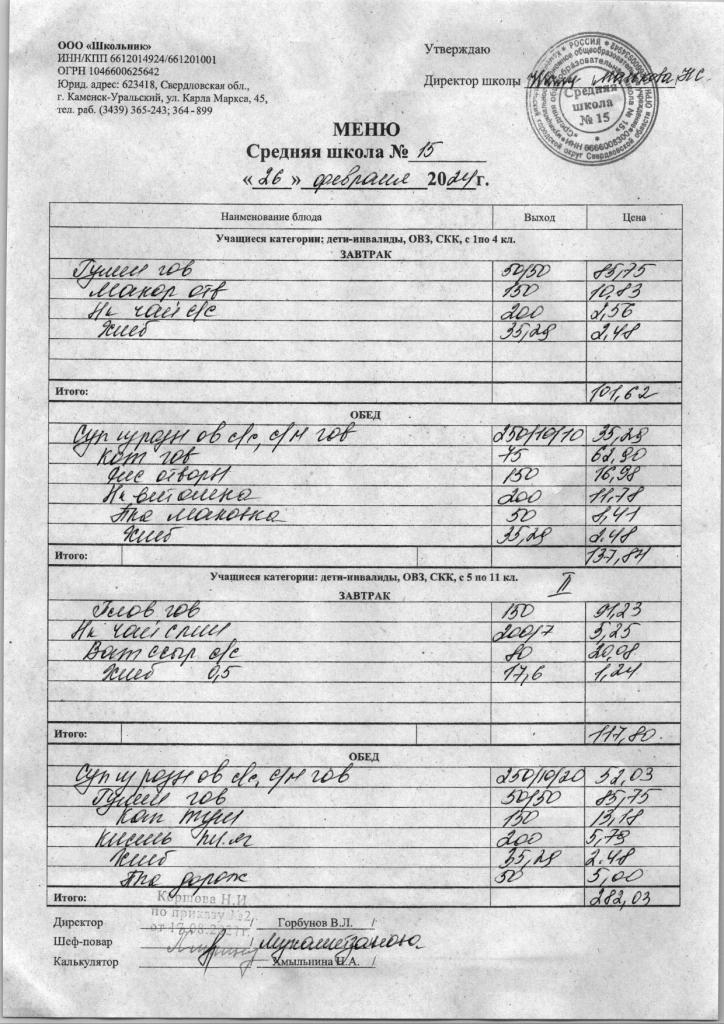 ООО «Школьник»
ИНН/КПП 6612014924/661201001
ОГРН 1046600625642
Юрид. адрес: 623418, Свердловская обл.,
г. Каменск-Уральский, ул. Карла Маркса, 45,
тел. раб. (3439) 365-243; 364 - 899
Утверждаю
Директор школы
РОССИЯ
Средняя
школа
№ 15
МЕНЮ
Средняя школа № 15
« 26 » февраля 2024 г.
Наименование блюда Выход Цена
Учащиеся категории: дети-инвалиды, ОВЗ, СКК, с 1по 4 кл.
ЗАВТРАК
Гуляш гов 50/50 85,75
Макар отв 150 10,83
Нк чай с/с 200 2,56
Хлеб 35,29 2,48
Итого: 101,62
ОБЕД
Суп из разн ов с/с, с/м гов 250/10/10 35,29
Кот гов 75 62,90
Рис отварн 150 16,98
Нк витошка 200 11,78
Пка маковка 50 8,41
Хлеб 35,29 2.48
Итого: 137,84
Учащиеся категории: дети-инвалиды, ОВЗ, СКК, с 5 по 11 кл. II
ЗАВТРАК
Плов гов 150 91,23
Нк чай слим 200/7 5,25
Ват с сыр. с/с 80 20,08
Хлеб 0,5 17,6 1,24
Итого: 117,80
ОБЕД
Суп из разн ов с/с, с/м гов 250/10/20 52,03
Гуляш гов 50/50 85,75
Кап туш 150 13,18
Кисель пл.яг 200 5,79
Хлеб 35,29 2.48
Пка дорож 50 5,00
Итого: 282,03
Коршова Н.И
по приказу №2
Директор / Горбунов В.Л. /
Шеф-повар /
Калькулятор / Хмыльнина Н.А. /